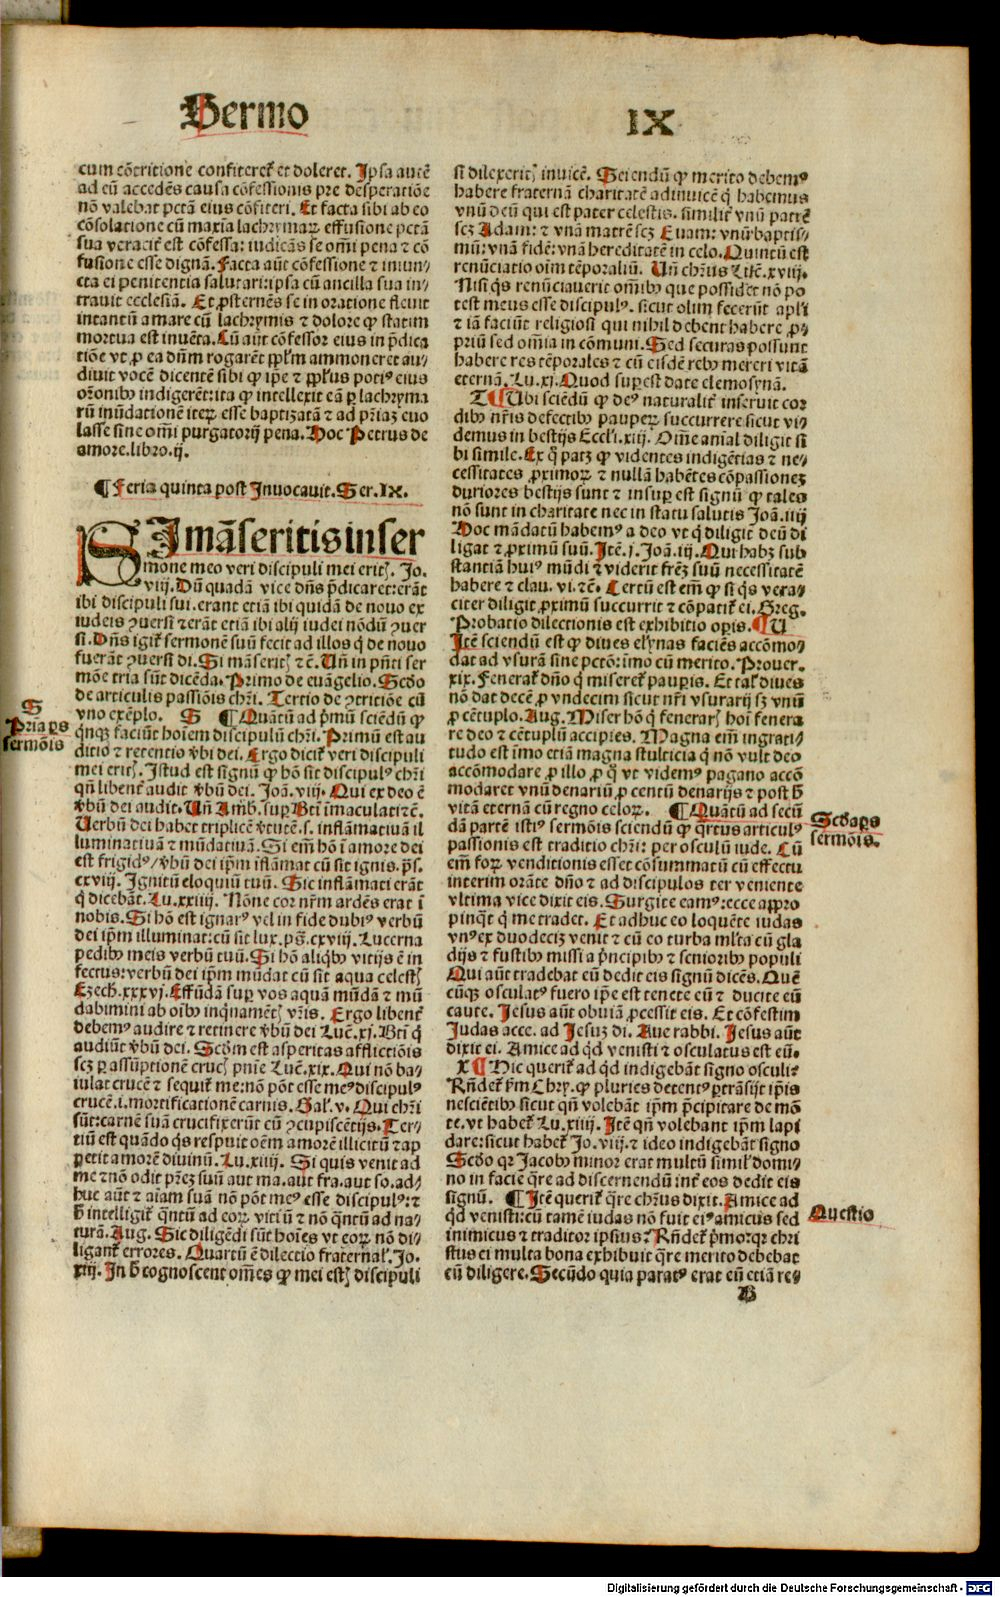 Sermo IX
cum cõtritione confiteret᷒ et doleret. Ipsa autẽ
ad eũ accedẽs causa cõfessionis pre desperatiõe
nõ valebat pctã eius cõfiteri. Et facta sibi ab eo
cõsolatione cũ maxĩa lachrymaꝝ effusione pctã
sua veracit᷒ est cõfessa: iudicãs se om̃i pena ⁊ cõ
fusione esse dignã. Facta aũt cõfessione ⁊ iniun/
cta ei penitentia salutari: ipsa cũ ancilla sua in/
trauit ecclesiã. Et ꝓsternẽs se in oratione fleuit
intantũ amare cũ lachrymis ⁊ dolore ꝙ statim
mortua est inuẽta. Cũ aũt cõfessor eius in p̃dica
tiõe vt ꝓ ea dñm rogarẽt pplm ammoneret au/
diuit vocẽ dicentẽ sibi ꝙ ip̃e ⁊ ppl'us poti᷒ eius
or̃onibꝰ indigerẽt: ita ꝙ intellexit eã ꝑ lachryma
rũ inũdationẽ iteꝝ esse baptizatã ⁊ ad pr̃iaꝫ euo
lasse sine om̃i purgatorij pena. Hoc Petrus de
amore. libro. ij.
¶ Feria quinta post Inuocauit. Ser. IX.
SI mãseritis in ser
mone meo veri discipuli mei eritꝭ. Jo.
viij. Dũ quadã vice dñs p̃dicaret: erãt
ibi discipuli sui. erant etiã ibi quidã de nouo ex
iudeis ꝯuersi ⁊ erãt etiã ibi alij iudei nõdũ ꝯuer
si. Dñs igit᷒ sermonẽ suũ fecit ad illos q̃ de nouo
fuerãt ꝯuersi di. Si mãseritꝭ ⁊c̃. Uñ in pñti ser
mõe tria sũt dicẽda. Primo de euãgelio. Scd̃o
de articulis passiõis chr̃i. Tertio de ꝯtritiõe cũ
vno exẽplo. S ¶ Quãtũ ad p̃mũ sciẽdũ ꝙ
q̃nqꝫ faciũt hoĩem discipulũ chr̃i. Primũ est au
ditio ⁊ retentio v̾bi dei. Ergo dicit᷒ veri discipuli
mei eritꝭ. Istud est signũ ꝙ hõ sit discipul᷒ chr̃i
qñ libent᷒ audit v̾bũ dei. Joã. viij. Qui ex deo ẽ
v̾bũ dei audit. Uñ Am̃b. suꝑ Bt̃i ĩmaculati ⁊c̃.
Uerbũ dei habet triplicẽ v̾tutẽ. s. inflãmatiuã il
luminatiuã ⁊ mũdatiuã. Si em̃ hõ ĩ amore dei
est frigid᷒/ v̾bũ dei ip̃m ĩflãmat cũ sit ignis. p̃s.
cxviij. Ignitũ eloquiũ tuũ. Sic inflãmati erãt
q̃ dicebãt. Lu. xxiiij. Nõne cor nr̃m ardẽs erat ĩ
nobis. Si hõ est ignar᷒ vel in fide dubi᷒ verbũ
dei ip̃m illuminat: cũ sit lux. pš. cxviij. Lucerna
pedibꝰ meis verbũ tuũ. Si hõ aliq̃bꝰ vitijs ẽ in
fectus: verbũ dei ip̃m mũdat cũ sit aqua celestꝭ
Ezech. xxxvj. Effũdã suꝑ vos aquã mũdã ⁊ mũ
dabimini ab oĩbꝰ inq̃namẽtꝭ vr̃is. Ergo libent᷒
debem᷒ audire ⁊ retinere v̾bũ dei Luc̃. xj. Bt̃i q̃
audiũt v̾bũ dei. Scd̃m est asperitas afflictiõis
scꝫ ꝑ assũptionẽ crucꝭ pñie Luc̃. xix. Qui nõ ba/
iulat crucẽ ⁊ sequit᷒ me: nõ põt esse me᷒ discipul᷒
crucẽ. i. mortificationẽ carnis. Gal'. v. Qui chr̃i
sũt: carnẽ suã crucifixerũt cũ ꝯcupiscẽtijs. Ter/
tiũ est quãdo q̃s respuit oẽm amorẽ illicitũ ⁊ ap
petit amorẽ diuinũ. Lu. xiiij. Si quis venit ad
me ⁊ nõ odit pr̃eꝫ suũ aut ma. aut fra. aut so. ad/
huc aũt ⁊ aĩam suã nõ põt me᷒ esse discipul᷒: ⁊
h̃ intelligit᷒ q̃ntũ ad eoꝝ vitiũ ⁊ nõ q̃ntũ ad na/
turã. Aug. Sic diligẽdi sũt hoĩes vt eoꝝ nõ di/
ligant᷒ errores. Quartũ ẽ dilectio fraternal'. Jo.
xiij. In h̃ cognoscent om̃es ꝙ mei estꝭ discipuli
S
Pria ps
sermõis
si dilexeritꝭ inuicẽ. Sciendũ ꝙ merito debem᷒
habere fraternã charitatẽ adinuicẽ q̃ habemus
vnũ deũ qui est pater celestis. similit᷒ vnũ patrẽ
scꝫ Adam: ⁊ vnã matrẽ scꝫ Euam: vnũ baptis/
mũ: vnã fidẽ: vnã hereditatẽ in celo. Quintũ est
renũciatio oĩm tẽporaliũ. Uñ chr̃us Luc̃. xviij.
Nisi q̃s renũciauerit om̃ibꝰ que possidet nõ po
test meus esse discipul᷒. sicut olim fecerũt apl'i
⁊ iã faciũt religiosi qui nihil debent habere ꝓ/
priũ sed om̃ia in cõmuni. Sed seculares possunt
habere res tẽporales ⁊ cũ eisdẽ rebꝰ mereri vitã
eternã. Lu. xj. Quod suꝑest date elemosynã.
T ¶ Ubi sciẽdũ ꝙ de᷒ naturalit᷒ inseruit cor
dibꝰ nr̃is defectibꝰ pauperꝝ succurrere sicut vi/
demus in bestijs Eccl'i. xiij. Om̃e anĩal diligit si
bi simile. Ex q̃ patꝫ ꝙ videntes indigẽtias ⁊ ne/
cessitates ꝓximoꝝ ⁊ nullã habẽtes cõpassioneꝫ
duriores bestijs sunt ⁊ insuꝑ est signũ ꝙ tales
nõ sunt in charitate nec in statu salutis Joã. iiij
Hoc mãdatũ habem᷒ a deo vt q̃ diligit deũ di
ligat ⁊ ꝓximũ suũ. Itẽ. j. Joã. iij. Qui habꝫ sub
stantiã hui᷒ mũdi ⁊ viderit fr̃eꝫ suũ necessitatẽ
habere ⁊ clau. vi. ⁊c̃. Certũ est em̃ ꝙ si q̃s vera/
citer diligit ꝓximũ succurrit ⁊ cõpatit᷒ ei. Greg.
Probatio dilectionis est exhibitio oꝑis. ¶ U
Itẽ sciendũ est ꝙ diues elynas faciẽs accõmo/
dat ad vsurã sine pctõ: ĩmo cũ merito. Prouer.
xix. Fenerat᷒ dño q̃ miseret᷒ pauꝑis. Et tal' diues
nõ dat decẽ ꝓ vndecim sicut nr̃i vsurarij sꝫ vnũ
ꝓ cẽtuplo. Aug. Miser hõ q̃ fenerarꝭ hoĩ fenera
re deo ⁊ cẽtuplũ accipies. Magna em̃ ingrati/
tudo est ĩmo etiã magna stulticia q̃ nõ vult deo
accõmodare ꝓ illo ꝓ q̃ vt videm᷒ pagano accõ
modaret vnũ denariũ ꝓ centũ denarijs ⁊ post h̃
vitã eternã cũ regno celoꝝ. ¶ Quãtũ ad secũ
dã partẽ isti᷒ sermõis sciendũ ꝙ q̃rtus articul᷒
passionis est traditio chr̃i: per osculũ iude. Cũ
em̃ foꝝ venditionis esset cõsummatũ cũ effectu
interim orãte dño ⁊ ad discipulos ter veniente
vltima vice dixit eis. Surgite eam᷒: ecce appro
pinq̃t q̃ me tradet. Et adhuc eo loquẽte iudas
vn᷒ ex duodeciꝫ venit ⁊ cũ eo turba ml'ta cũ gla
dijs ⁊ fustibꝰ missi a p̃ncipibꝰ ⁊ senioribꝰ populi
Qui aũt tradebat eũ dedit eis signũ dicẽs. Quẽ
cũqꝫ osculat᷒ fuero ip̃e est tenete eũ ⁊ ducite eũ
caute. Jesus aũt obuiã ꝓcessit eis. Et cõfestim
Judas acce. ad Jesuꝫ di. Aue rabbi. Jesus aũt
dixit ei. Amice ad q̃d venisti ⁊ osculatus est eũ.
X ¶ Hic querit᷒ ad q̃d indigebãt signo osculi?
Rñdet᷒ p̃m Chry. ꝙ pluries detent᷒ ꝑtrãsijt ip̃is
nesciẽtibꝰ sicut qñ volebãt ip̃m p̃cipitare de mõ
te. vt habet᷒ Lu. xiiij. Itẽ qñ volebant ip̃m lapi
dare: sicut habet᷒ Jo. viij. ⁊ ideo indigebãt signo
Scd̃o qꝛ Jacobꝰ minor erat multũ simil' domi/
no in facie q̃re ad discernendũ int᷒ eos dedit eis
signũ. ¶ Itẽ querit᷒ q̃re chr̃us dixit. Amice ad
q̃d venisti: cũ tamẽ iudas nõ fuit ei᷒ amicus sed
inimicus ⁊ traditor ipsius? Rñdet᷒ p̃mo: qꝛ chri
stus ei multa bona exhibuit q̃re merito debebat
eũ diligere. Secũdo quia parat᷒ erat eũ etiã re/
Scd̃a ps
sermõis.
Questio
B
Digitalisierung gefördert durch die Deutsche Forschungsgemeinschaft - DFG